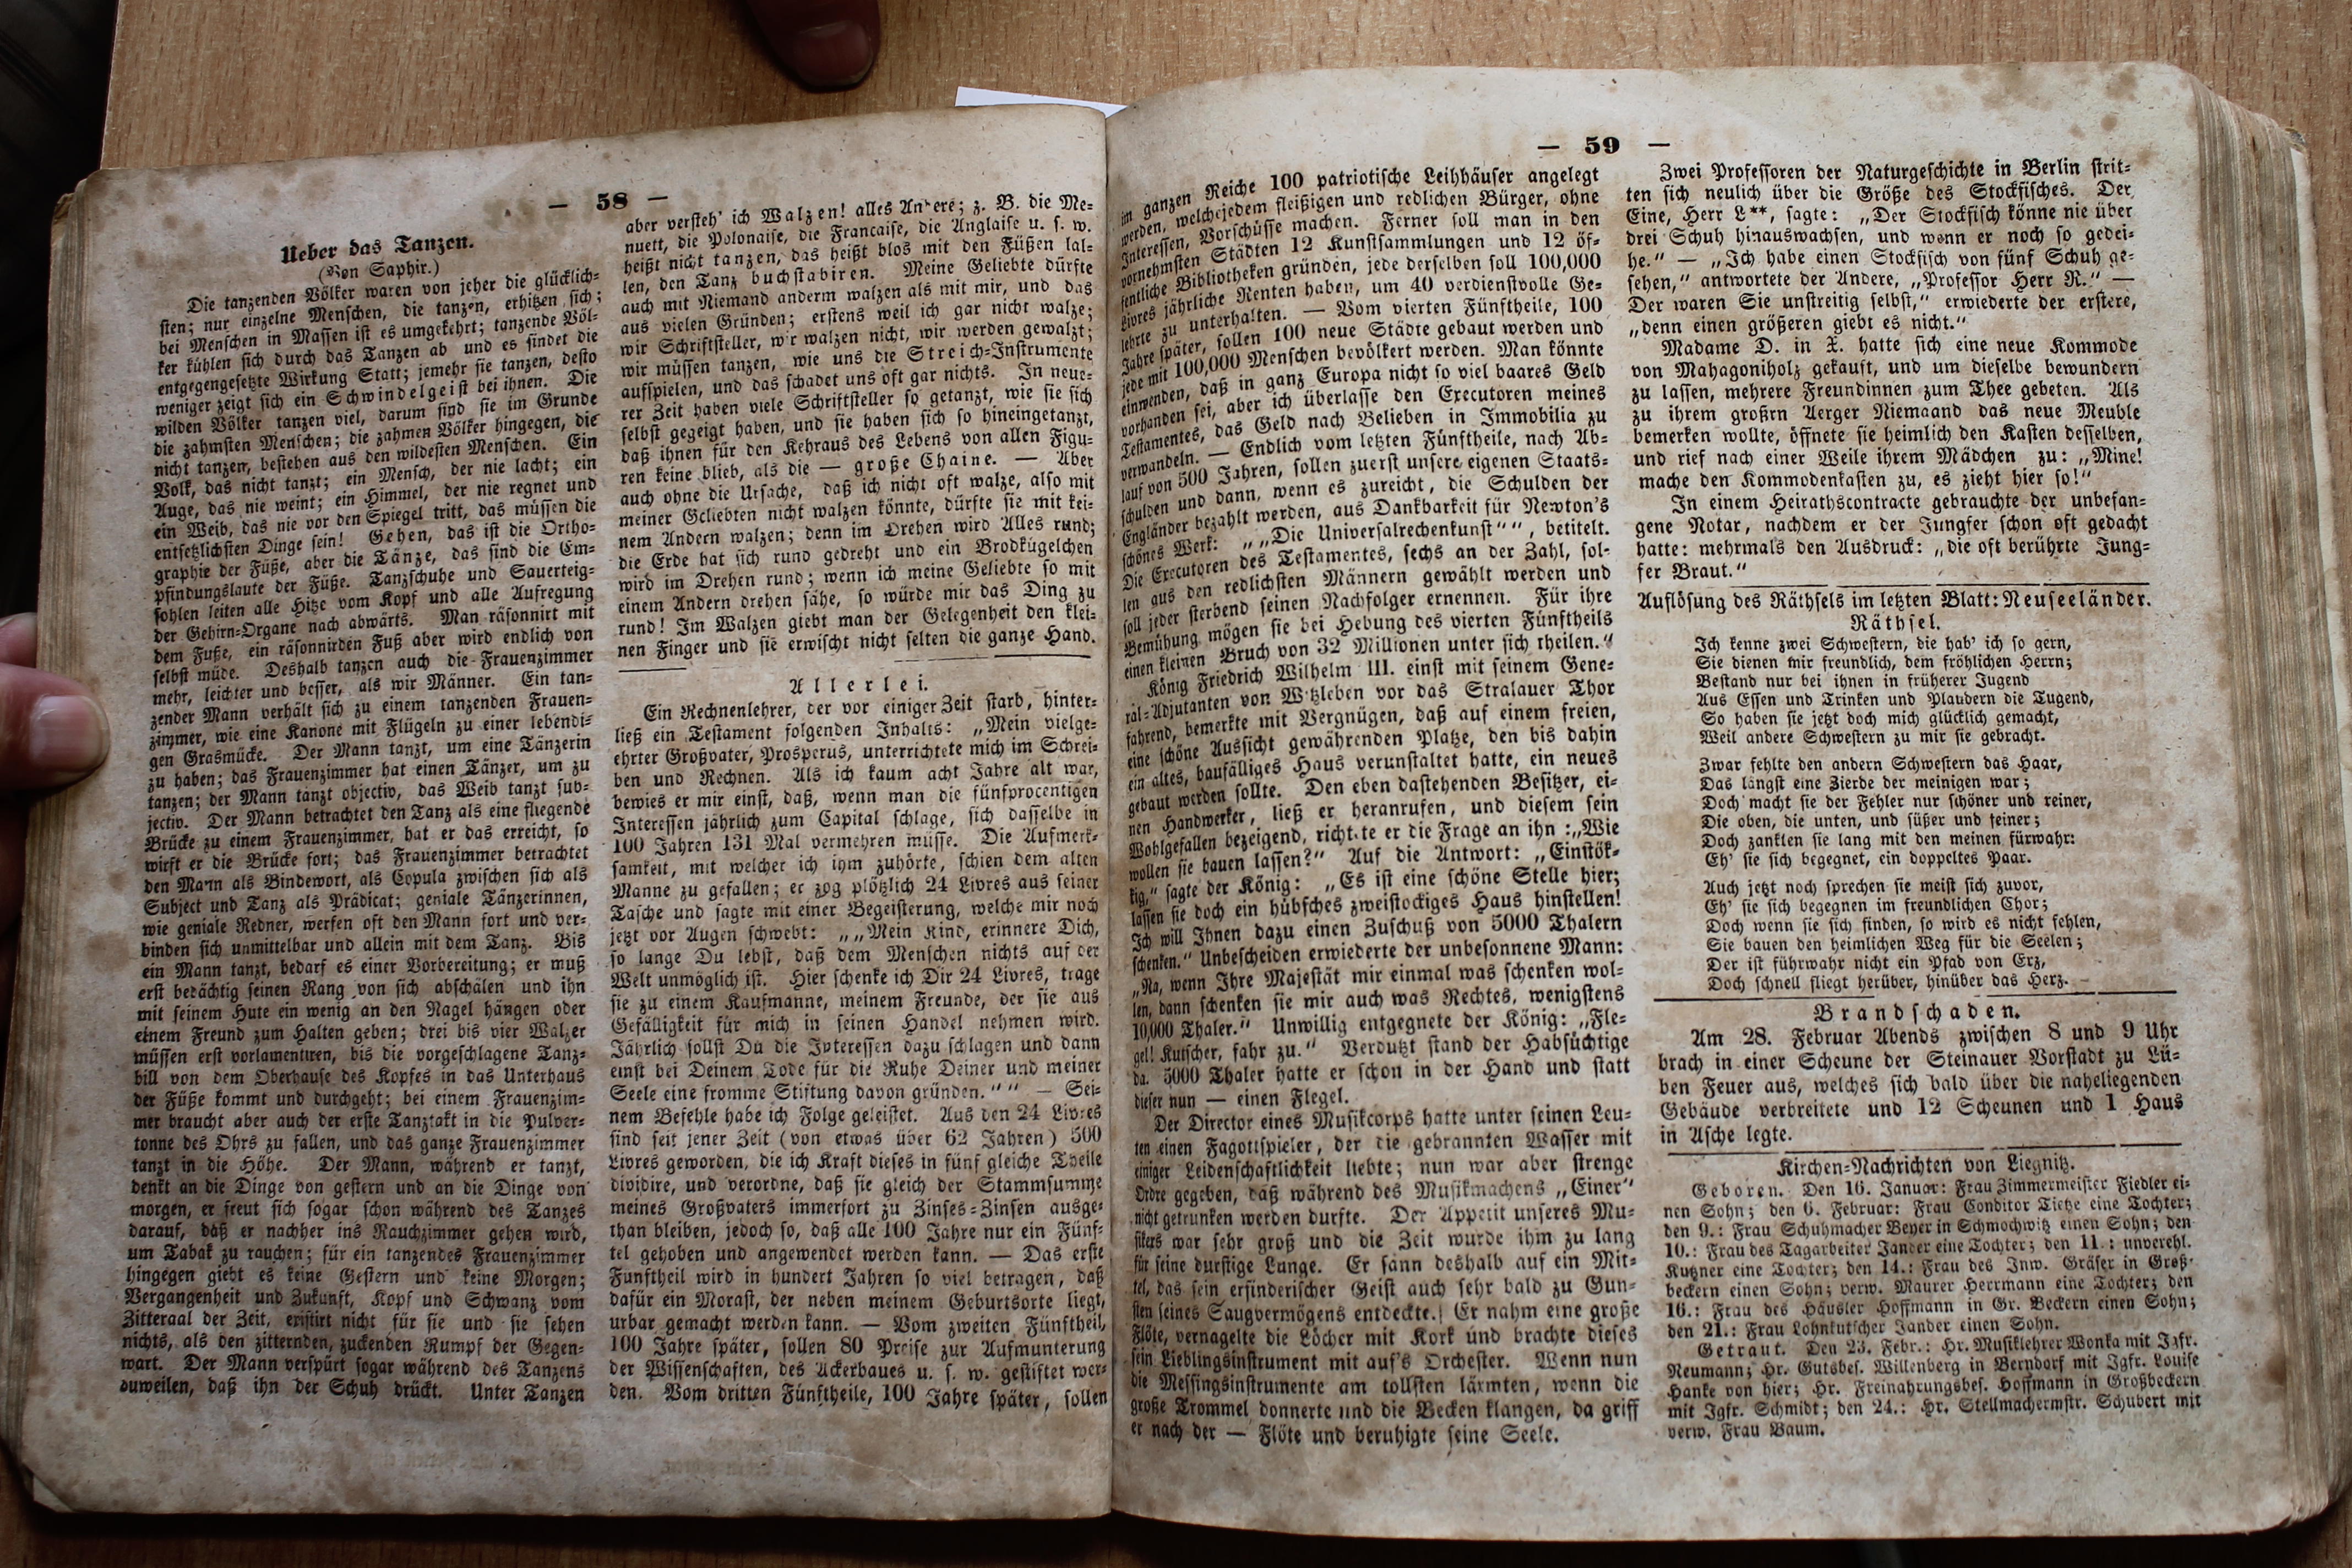 — 58 —
Ueber das Tanzen.
(Von Saphir.)
Die tanzenden Völker waren von jeher die glücklich-
sten; nur einzelne Menschen, die tanzen, erhitzen sich;
bei Menschen in Massen ist es umgekehrt; tanzende Völ-
ker kühlen sich durch das Tanzen ab und es findet die
entgegengesetzte Wirkung Statt; jemehr sie tanzen, desto
weniger zeigt sich ein Schwindelgeist bei ihnen. Die
wilden Völker tanzen viel, darum sind sie im Grunde
die zahmsten Menschen; die zahmen Völker hingegen, die
nicht tanzen, bestehen aus den wildesten Menschen. Ein
Volk, das nicht tanzt; ein Mensch, der nie lacht; ein
Auge, das nie weint; ein Himmel, der nie regnet und
ein Weib, das nie vor den Spiegel tritt, das müssen die
entsetzlichsten Dinge sein! Gehen, das ist die Ortho-
graphie der Füße, aber die Tänze, das sind die Em-
pfindungslaute der Füße. Tanzschuhe und Sauerteig-
sohlen leiten alle Hitze vom Kopf und alle Aufregung
der Gehirn-Organe nach abwärts. Man räsonnirt mit
dem Fuße, ein räsonnirden Fuß aber wird endlich von
selbst müde. Deshalb tanzen auch die Frauenzimmer
mehr, leichter und besser, als wir Männer. Ein tan-
zender Mann verhält sich zu einem tanzenden Frauen-
zimmer, wie eine Kanone mit Flügeln zu einer lebendi-
gen Grasmücke. Der Mann tanzt, um eine Tänzerin
zu haben; das Frauenzimmer hat einen Tänzer, um zu
tanzen; der Mann tanzt objectiv, das Weib tanzt sub-
jectiv. Der Mann betrachtet den Tanz als eine fliegende
Brücke zu einem Frauenzimmer, hat er das erreicht, so
wirft er die Brücke fort; das Frauenzimmer betrachtet
den Mann als Bindewort, als Copula zwischen sich als
Subject und Tanz als Prädicat; geniale Tänzerinnen,
wie geniale Redner, werfen oft den Mann fort und ver-
binden sich unmittelbar und allein mit dem Tanz. Bis
ein Mann tanzt, bedarf es einer Vorbereitung; er muß
erst bedächtig seinen Rang von sich abschälen und ihn
mit seinem Hute ein wenig an den Nagel hängen oder
einem Freund zum Halten geben; drei bis vier Walzer
müssen erst vorlamentiren, bis die vorgeschlagene Tanz-
bill von dem Oberhause des Kopfes in das Unterhaus
der Füße kommt und durchgeht; bei einem Frauenzim-
mer braucht aber auch der erste Tanztakt in die Pulver-
tonne des Ohrs zu fallen, und das ganze Frauenzimmer
tanzt in die Höhe. Der Mann, während er tanzt,
denkt an die Dinge von gestern und an die Dinge von
morgen, er freut sich sogar schon während des Tanzes
darauf, daß er nachher ins Rauchzimmer gehen wird,
um Tabak zu rauchen; für ein tanzendes Frauenzimmer
hingegen giebt es keine Gestern und keine Morgen;
Vergangenheit und Zukunft, Kopf und Schwanz vom
Zitteraal der Zeit, existirt nicht für sie und sie sehen
nichts, als den zitternden, zuckenden Rumpf der Gegen-
wart. Der Mann verspürt sogar während des Tanzens
zuweilen, daß ihn der Schuh drückt. Unter Tanzen
aber versteh' ich Walzen! alles Andere; z. B. die Me-
nuett, die Polonaise, die Francaise, die Anglaise u. s. w.
heißt nicht tanzen, das heißt blos mit den Füßen lal-
len, den Tanz buchstabiren. Meine Geliebte dürfte
auch mit Niemand anderm walzen als mit mir, und das
aus vielen Gründen; erstens weil ich gar nicht walze;
wir Schriftsteller, wir walzen nicht, wir werden gewalzt;
wir müssen tanzen, wie uns die Streich-Instrumente
aufspielen, und das schadet uns oft gar nichts. In neue-
rer Zeit haben viele Schriftsteller so getanzt, wie sie sich
selbst gegeigt haben, und sie haben sich so hineingetanzt,
daß ihnen für den Kehraus des Lebens von allen Figu-
ren keine blieb, als die — große Chaine. — Aber
auch ohne die Ursache, daß ich nicht oft walze, also mit
meiner Geliebten nicht walzen könnte, dürfte sie mit kei-
nem Andern walzen; denn im Drehen wird Alles rund;
die Erde hat sich rund gedreht und ein Brodkügelchen
wird im Drehen rund; wenn ich meine Geliebte so mit
einem Andern drehen sähe, so würde mir das Ding zu
rund! Im Walzen giebt man der Gelegenheit den klei-
nen Finger und sie erwischt nicht selten die ganze Hand.
Allerlei.
Ein Rechnenlehrer, der vor einiger Zeit starb, hinter-
ließ ein Testament folgenden Inhalts: „Mein vielge-
ehrter Großvater, Prosperus, unterrichtete mich im Schrei-
ben und Rechnen. Als ich kaum acht Jahre alt war,
bewies er mir einst, daß, wenn man die fünfprocentigen
Interessen jährlich zum Capital schlage, sich dasselbe in
100 Jahren 131 Mal vermehren müsse. Die Aufmerk-
samkeit, mit welcher ich ihm zuhörte, schien dem alten
Manne zu gefallen; er zog plötzlich 24 Livres aus seiner
Tasche und sagte mit einer Begeisterung, welche mir noch
jetzt vor Augen schwebt: „„Mein Kind, erinnere Dich,
so lange Du lebst, daß dem Menschen nichts auf der
Welt unmöglich ist. Hier schenke ich Dir 24 Livres, trage
sie zu einem Kaufmanne, meinem Freunde, der sie aus
Gefälligkeit für mich in seinen Handel nehmen wird.
Jährlich sollst Du die Interessen dazu schlagen und dann
einst bei Deinem Tode für die Ruhe Deiner und meiner
Seele eine fromme Stiftung davon gründen.““ — Sei-
nem Befehle habe ich Folge geleistet. Aus den 24 Livres
sind seit jener Zeit (von etwas über 62 Jahren) 500
Livres geworden, die ich Kraft dieses in fünf gleiche Theile
dividire, und verordne, daß sie gleich der Stammsumme
meines Großvaters immerfort zu Zinses-Zinsen ausge-
than bleiben, jedoch so, daß alle 100 Jahre nur ein Fünf-
tel gehoben und angewendet werden kann. — Das erste
Fünftheil wird in hundert Jahren so viel betragen, daß
dafür ein Morast, der neben meinem Geburtsorte liegt,
urbar gemacht werden kann. — Vom zweiten Fünftheil,
100 Jahre später, sollen 80 Preise zur Aufmunterung
der Wissenschaften, des Ackerbaues u. s. w. gestiftet wer-
den. Vom dritten Fünftheile, 100 Jahre später, sollen
— 59 —
im ganzen Reiche 100 patriotische Leihhäuser angelegt
werden, welche jedem fleißigen und redlichen Bürger, ohne
Interessen, Vorschüsse machen. Ferner soll man in den
vornehmsten Städten 12 Kunstsammlungen und 12 öf-
fentliche Bibliotheken gründen, jede derselben soll 100,000
Livres jährliche Renten haben, um 40 verdienstvolle Ge-
lehrte zu unterhalten. — Vom vierten Fünftheile, 100
Jahre später, sollen 100 neue Städte gebaut werden und
jede mit 100,000 Menschen bevölkert werden. Man könnte
einwenden, daß in ganz Europa nicht so viel baares Geld
vorhanden sei, aber ich überlasse den Executoren meines
Testamentes, das Geld nach Belieben in Immobilia zu
verwandeln. — Endlich vom letzten Fünftheile, nach Ab-
lauf von 500 Jahren, sollen zuerst unsere eigenen Staats-
schulden und dann, wenn es zureicht, die Schulden der
Engländer bezahlt werden, aus Dankbarkeit für Newton's
schönes Werk: „„Die Universalrechenkunst““, betitelt.
Die Executoren des Testamentes, sechs an der Zahl, sol-
len aus den redlichsten Männern gewählt werden und
soll jeder sterbend seinen Nachfolger ernennen. Für ihre
Bemühung mögen sie bei Hebung des vierten Fünftheils
einen kleinen Bruch von 32 Millionen unter sich theilen.“
König Friedrich Wilhelm III. einst mit seinem Gene-
ral-Adjutanten von Witzleben vor das Stralauer Thor
fahrend, bemerkte mit Vergnügen, daß auf einem freien,
eine schöne Aussicht gewährenden Platze, den bis dahin
ein altes, baufälliges Haus verunstaltet hatte, ein neues
gebaut werden sollte. Den eben dastehenden Besitzer, ei-
nen Handwerker, ließ er heranrufen, und diesem sein
Wohlgefallen bezeigend, richtete er die Frage an ihn: „Wie
wollen sie bauen lassen?“ Auf die Antwort: „Einstök-
kig,“ sagte der König: „Es ist eine schöne Stelle hier;
lassen sie doch ein hübsches zweistockiges Haus hinstellen!
Ich will Ihnen dazu einen Zuschuß von 5000 Thalern
schenken.“ Unbescheiden erwiederte der unbesonnene Mann:
„Na, wenn Ihre Majestät mir einmal was schenken wol-
len, dann schenken sie mir auch was Rechtes, wenigstens
10,000 Thaler.“ Unwillig entgegnete der König: „Fle-
gel! Kutscher, fahr zu.“ Verdutzt stand der Habsüchtige
da. 5000 Thaler hatte er schon in der Hand und statt
dieser nun — einen Flegel.
Der Director eines Musikcorps hatte unter seinen Leu-
ten einen Fagottspieler, der die gebrannten Wasser mit
einiger Leidenschaftlichkeit liebte; nun war aber strenge
Ordre gegeben, daß während des Musikmachens „Einer“
nicht getrunken werden durfte. Der Appetit unseres Mu-
sikers war sehr groß und die Zeit wurde ihm zu lang
für seine durstige Lunge. Er sann deshalb auf ein Mit-
tel, das sein erfinderischer Geist auch sehr bald zu Gun-
sten seines Saugvermögens entdeckte. Er nahm eine große
Flöte, vernagelte die Löcher mit Kork und brachte dieses
sein Lieblingsinstrument mit auf's Orchester. Wenn nun
die Messingsinstrumente am tollsten lärmten, wenn die
große Trommel donnerte und die Becken klangen, da griff
er nach der — Flöte und beruhigte seine Seele.
Zwei Professoren der Naturgeschichte in Berlin strit-
ten sich neulich über die Größe des Stockfisches. Der
Eine, Herr L**, sagte: „Der Stockfisch könne nie über
drei Schuh hinauswachsen, und wenn er noch so gedei-
he.“ — „Ich habe einen Stockfisch von fünf Schuh ge-
sehen,“ antwortete der Andere, „Professor Herr R.“ —
Der waren Sie unstreitig selbst,“ erwiederte der erstere,
„denn einen größeren giebt es nicht.“
Madame D. in X. hatte sich eine neue Kommode
von Mahagoniholz gekauft, und um dieselbe bewundern
zu lassen, mehrere Freundinnen zum Thee gebeten. Als
zu ihrem großrn Aerger Niemaand das neue Meuble
bemerken wollte, öffnete sie heimlich den Kasten desselben,
und rief nach einer Weile ihrem Mädchen zu: „Mine!
mache den Kommodenkasten zu, es zieht hier so!“
In einem Heirathscontracte gebrauchte der unbefan-
gene Notar, nachdem er der Jungfer schon oft gedacht
hatte: mehrmals den Ausdruck: „die oft berührte Jung-
fer Braut.“
Auflösung des Räthsels im letzten Blatt: Neuseeländer.
Räthsel.
Ich kenne zwei Schwestern, die hab' ich so gern,
Sie dienen mir freundlich, dem fröhlichen Herrn;
Bestand nur bei ihnen in früherer Jugend
Aus Essen und Trinken und Plaudern die Tugend,
So haben sie jetzt doch mich glücklich gemacht,
Weil andere Schwestern zu mir sie gebracht.
Zwar fehlte den andern Schwestern das Haar,
Das längst eine Zierde der meinigen war;
Doch macht sie der Fehler nur schöner und reiner,
Die oben, die unten, und süßer und feiner;
Doch zankten sie lang mit den meinen fürwahr:
Eh' sie sich begegnet, ein doppeltes Paar.
Auch jetzt noch sprechen sie meist sich zuvor,
Eh' sie sich begegnen im freundlichen Chor;
Doch wenn sie sich finden, so wird es nicht fehlen,
Sie bauen den heimlichen Weg für die Seelen;
Der ist führwahr nicht ein Pfad von Erz,
Doch schnell fliegt herüber, hinüber das Herz.
Brandschaden.
Am 28. Februar Abends zwischen 8 und 9 Uhr
brach in einer Scheune der Steinauer Vorstadt zu Lü-
ben Feuer aus, welches sich bald über die naheliegenden
Gebäude verbreitete und 12 Scheunen und 1 Haus
in Asche legte.
Kirchen-Nachrichten von Liegnitz.
Geboren. Den 16. Januar: Frau Zimmermeister Fiedler ei-
nen Sohn; den 6. Februar: Frau Conditor Tietze eine Tochter;
den 9.: Frau Schuhmacher Beyer in Schmochwitz einen Sohn; den
10.: Frau des Tagarbeiter Jander eine Tochter; den 11.: unverehl.
Kutzner eine Tochter; den 14.: Frau des Inw. Gräser in Groß-
beckern einen Sohn; verw. Maurer Herrmann eine Tochter; den
16.: Frau des Häusler Hoffmann in Gr. Beckern einen Sohn;
den 21.: Frau Lohnkutscher Jander einen Sohn.
Getraut. Den 23. Febr.: Hr. Musiklehrer Wonka mit Igfr.
Neumann; Hr. Gutsbes. Willenberg in Berndorf mit Igfr. Louise
Hanke von hier; Hr. Freinahrungsbes. Hoffmann in Großbeckern
mit Igfr. Schmidt; den 24.: Hr. Stellmachermstr. Schubert mit
verw. Frau Baum.